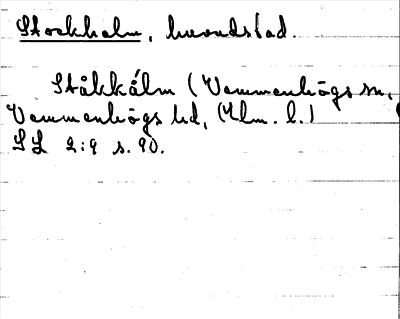 Stockholm, huvudstad.
Ståkkålm (Vemmenhögs sn,
Vemmenhögs hd, (Mlm. l.)
SL 2:9 s. 90.